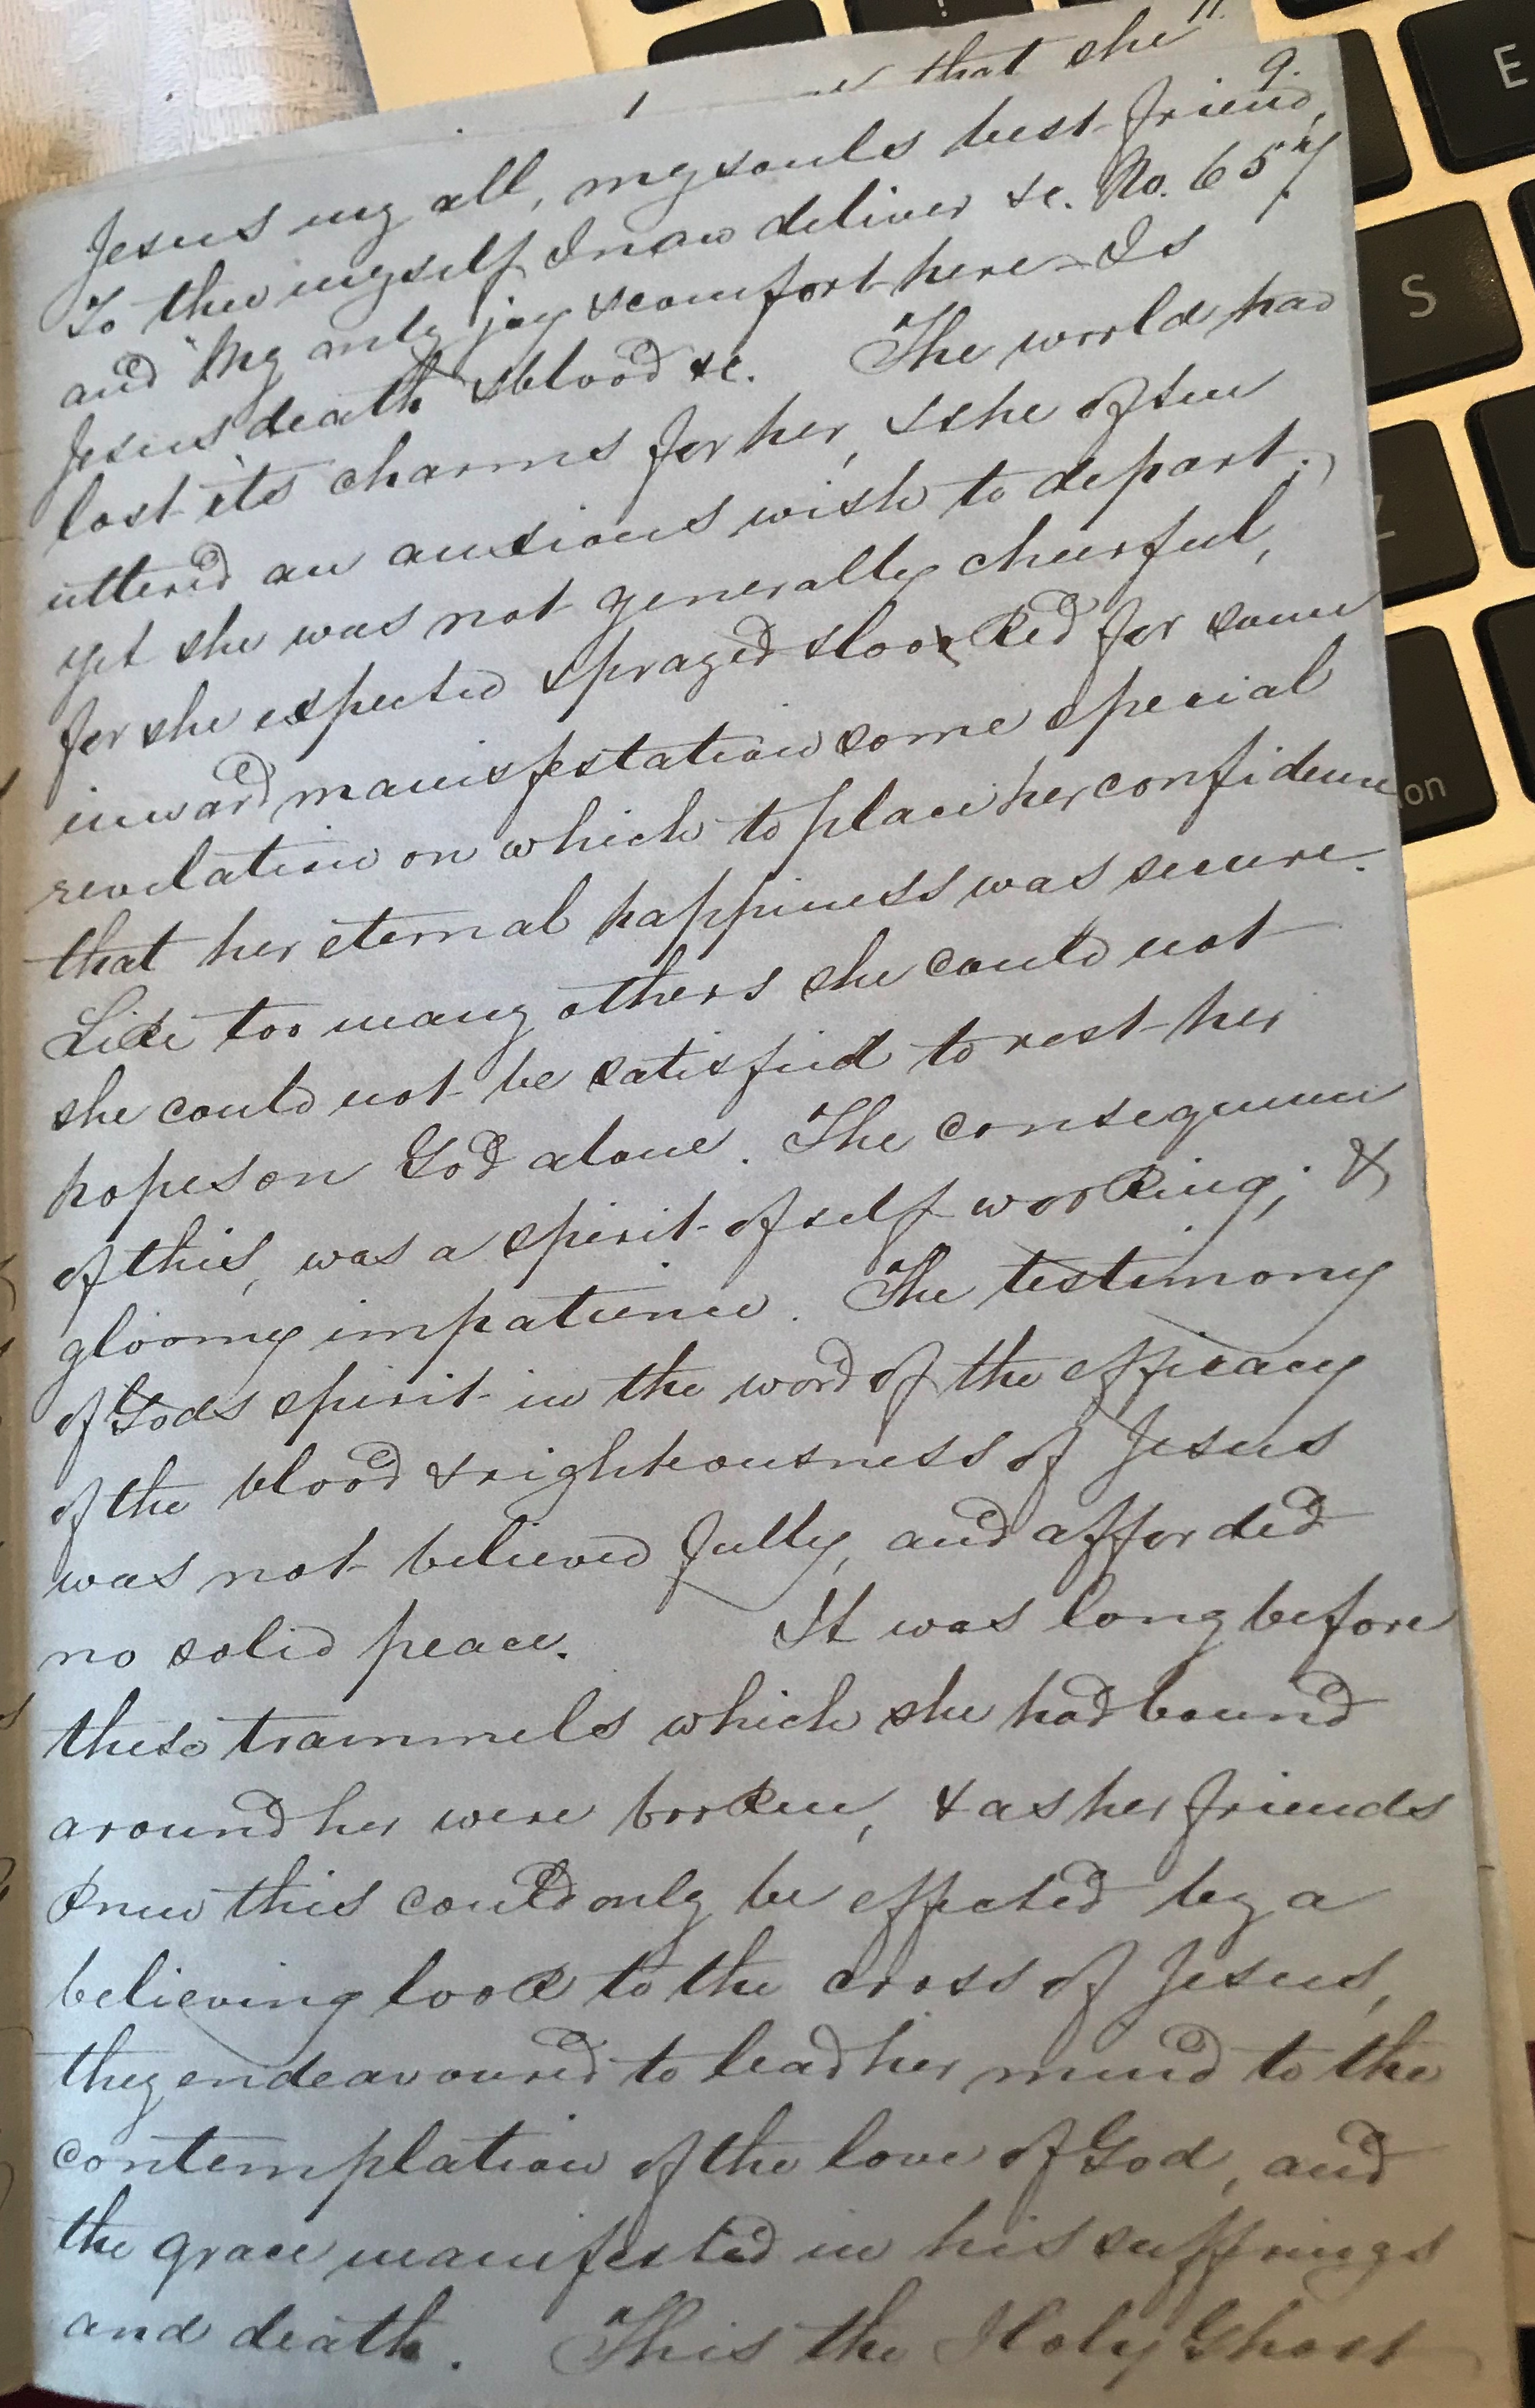 11.
that she
9.
Jesus my all, my souls best friend,
To thee myself I now deliver &c. No. 657.
and "My only joy & comfort here - Is
Jesus' death & blood &c. The world had
lost its charms for her, & she often
uttered an anxious wish to depart;
yet she was not generally cheerful,
for she expected & prayed & looked for some
inward manifestation some special
revelation on which to place her confidence
that her eternal happiness was secure.
Like too many others she could not
she could not be satisfied to rest her
hopes on God alone. The consequence
of this, was a spirit of self working; &
gloomy impatience. The testimony
of Gods spirit in the word of the efficacy
of the blood & righteousness of Jesus
was not believed fully, and afforded
no solid peace. It was long before
these trammels which she had bound
around her were broken, & as her friends
knew this could only be effected by a
believing look to the cross of Jesus,
they endeavoured to lead her mind to the
contemplation of the love of God, and
the grace manifested in his sufferings
and death. This the Holy Ghost
E
S
Z
on